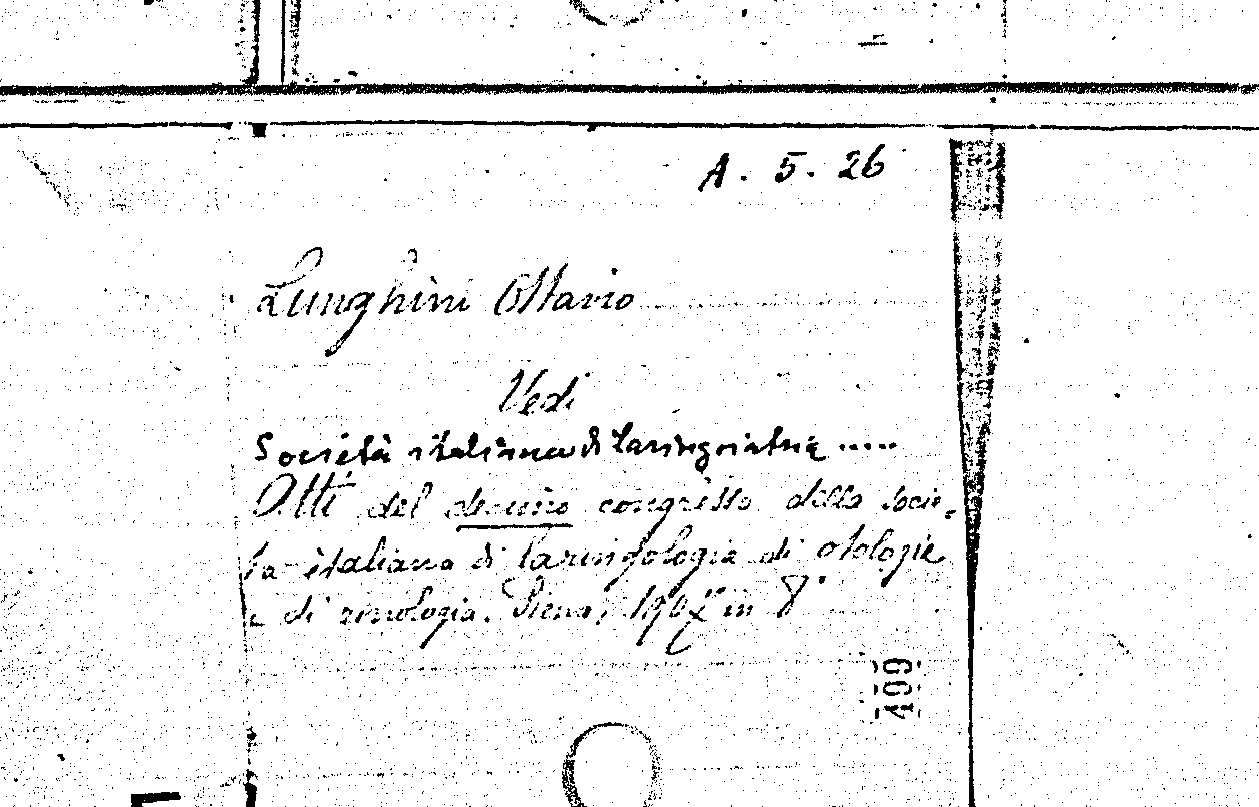 A. 5. 26
Lunghini Ottavio
Vedi
Società italiana di laringoiatria .....
Atti del decimo congresso della socie-
tà italiana di laringologia di otologia
e di rinologia. Siena, 1907 in 8°
499